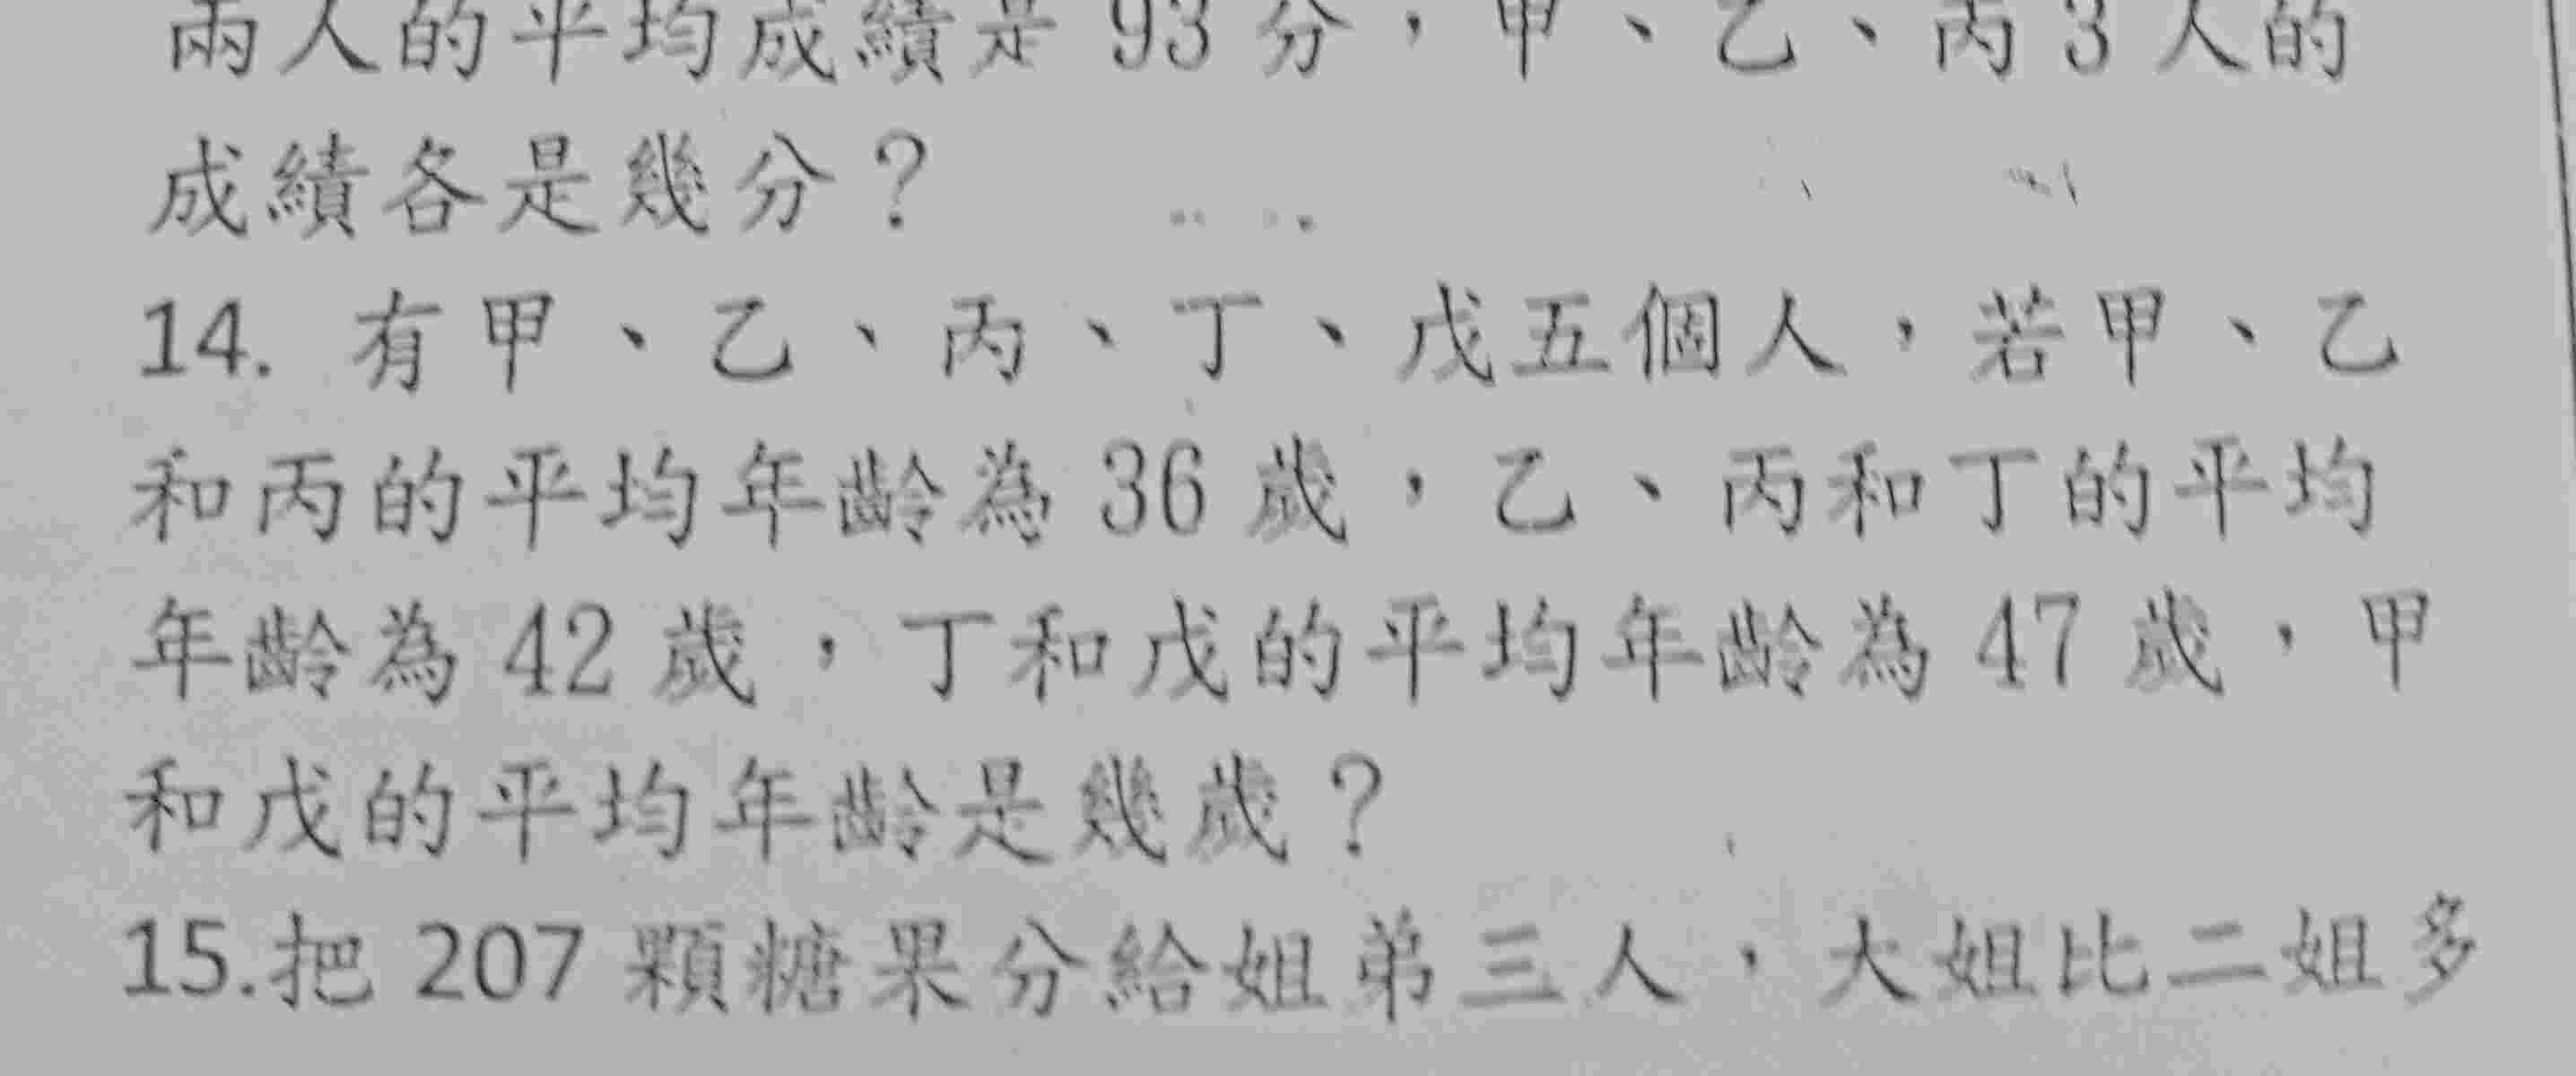 兩人的平均成績是 93 分，甲、乙、丙 3 人的
成績各是幾分？
14. 有甲、乙、丙、丁、戊五個人，若甲、乙
和丙的平均年齡為 36 歲，乙、丙和丁的平均
年齡為 42 歲，丁和戊的平均年齡為 47 歲，甲
和戊的平均年齡是幾歲？
15.把 207 顆糖果分給姐弟三人，大姐比二姐多